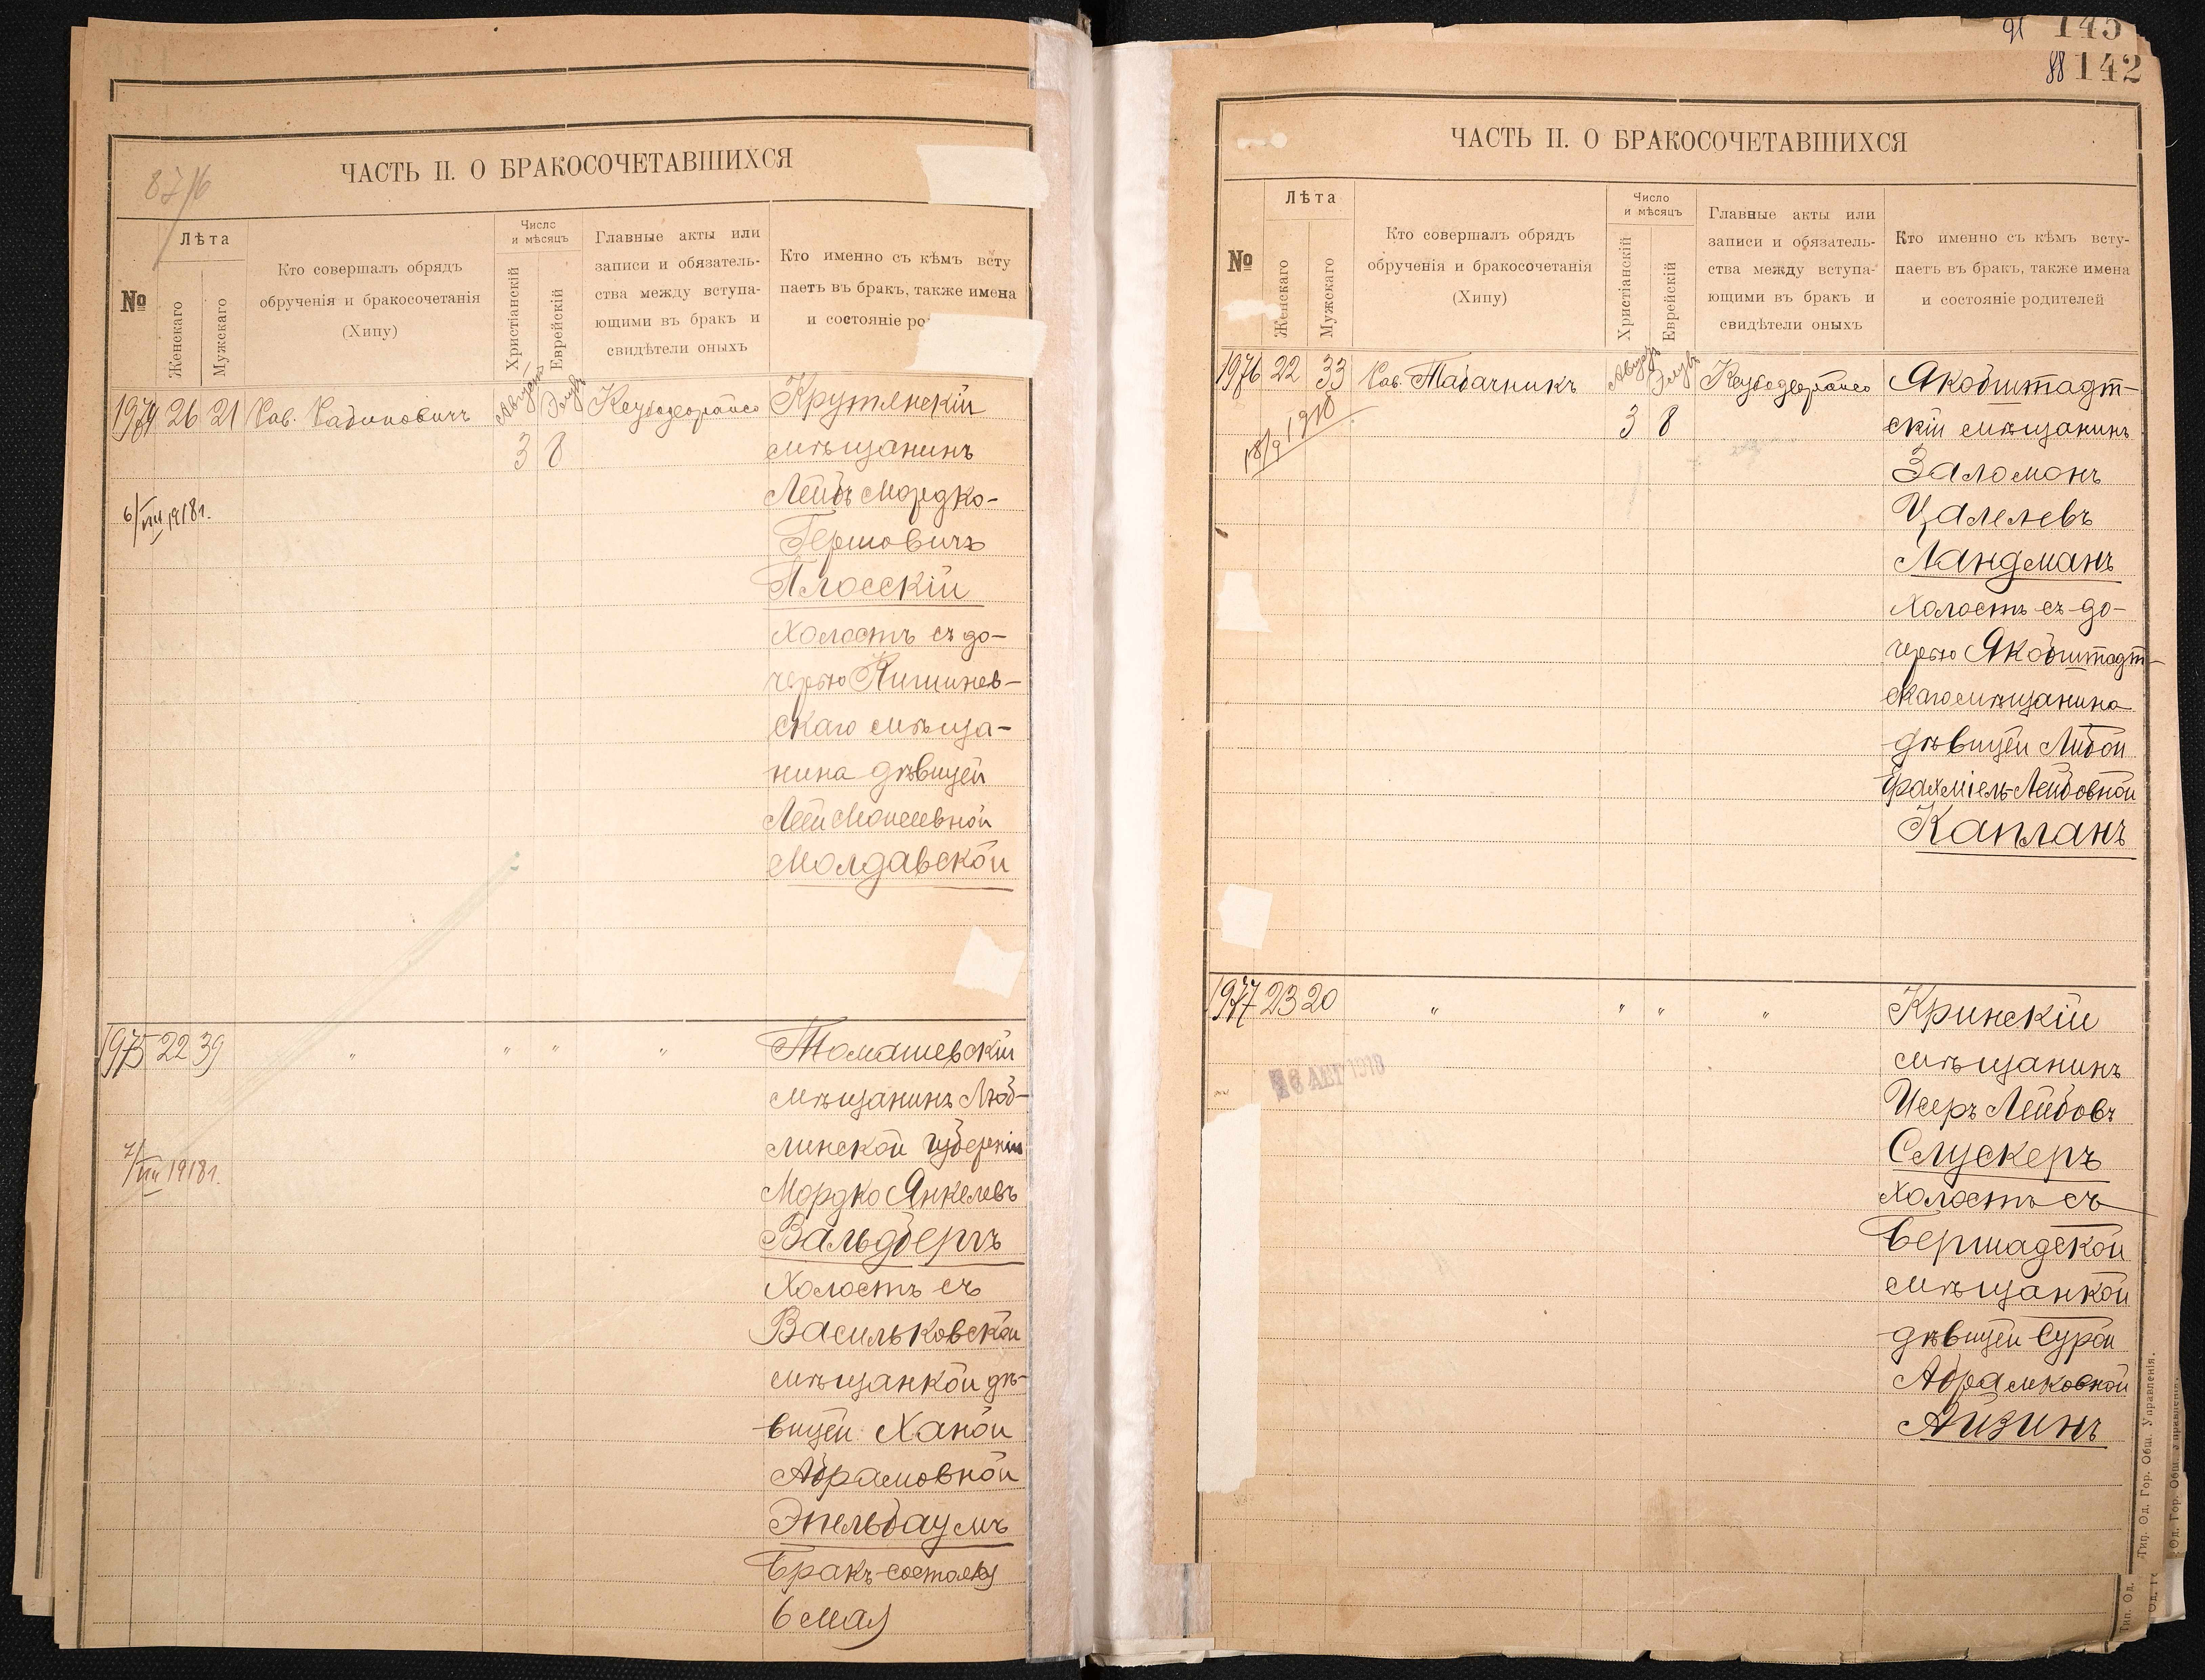 87/6
ЧАСТЬ II. О БРАКОСОЧЕТАВШИХСЯ
№
Лѣта
Женскаго
Мужскаго
Кто совершалъ обрядъ
обрученія и бракосочетанія
(Хипу)
Число
и мѣсяцъ
Христіанскій
Еврейскій
Главные акты или
записи и обязатель-
ства между вступа-
ющими въ бракъ и
свидѣтели оныхъ
Кто именно съ кѣмъ всту
паетъ въ бракъ, также имена
и состояніе ро
1974 26 21 Рав. Рабиновичъ Августъ Элулъ
3 8
6/VIII 1918г.
Крутянскій
мѣщанинъ
Лейбъ Мордко-
Гершовичъ
Плосскій
Холостъ съ до-
черью Кишинев-
скаго мѣща-
нина дѣвицей
Леей Мошевной
Молдавской
1975 22 39 " " " "
7/VIII 1918г.
Томашевскій
мѣщанинъ Люб-
линской губерніи
Мордко Янкелевъ
Вальдбергъ
Холостъ съ
Васильковской
мѣщанкой дѣ-
вицей Ханой
Абрамовной
Эпельбаумъ
Бракъ состоялся
6 мая
91 145
88 142
ЧАСТЬ II. О БРАКОСОЧЕТАВШИХСЯ
№
Лѣта
Женскаго
Мужскаго
Кто совершалъ обрядъ
обрученія и бракосочетанія
(Хипу)
Число
и мѣсяцъ
Христіанскій
Еврейскій
Главные акты или
записи и обязатель-
ства между вступа-
ющими въ бракъ и
свидѣтели оныхъ
Кто именно съ кѣмъ всту-
паетъ въ бракъ, также имена
и состояніе родителей
1976 22 33 Рав. Табачникъ Августъ Элулъ
3 8
18/9 1918
Якобштадт-
скій мѣщанинъ
Заломонъ
Цалелевъ
Ландманъ
Холостъ съ до-
черью Якобштадт-
скаго мѣщанина
дѣвицей Либой
Фалкміель-Лейбовной
Капланъ
1977 23 20 " " " "
Кринскій
мѣщанинъ
Исеръ Лейбовъ
Слускеръ
Холостъ съ
Бершадской
мѣщанкой
дѣвицей Сурой
Абрамковной
Айзинъ
Тип. Од. Гор. Общ. Управленія.